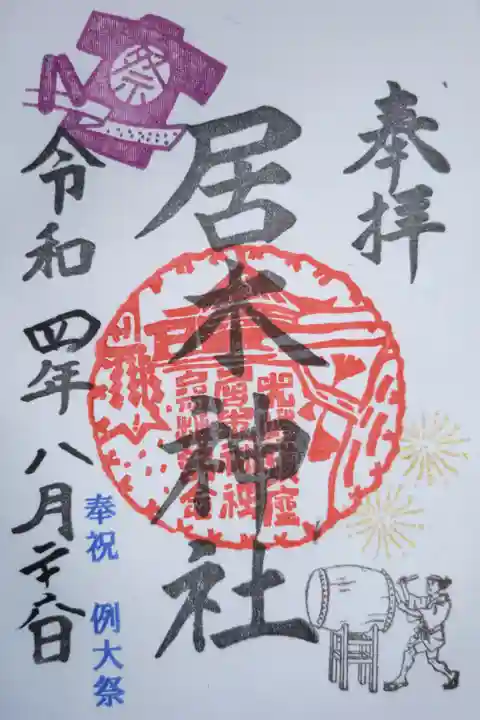 奉拝
居木神社
令和四年八月二十八日
奉祝 例大祭
祭